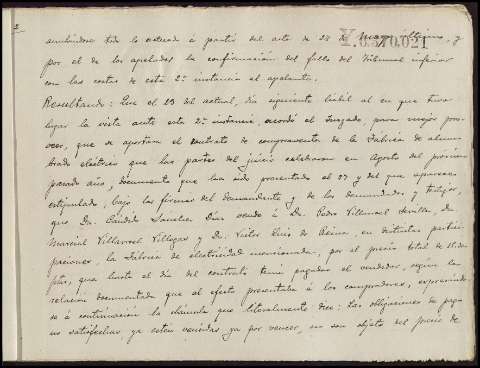 2
anulándose todo lo actuado á partir del acto de 28 de Mayo último, y
Y.6370.021
por el de los apelados la confirmación del fallo del Tribunal inferior
con las costas de esta 2ª instancia al apelante.
Resultando: Que el 23 del actual, día siguiente hábil al en que tuvo
lugar la vista ante esta 2ª instancia, acordó el Juzgado, para mejor pro-
veer, que se aportara el contrato de compraventa de la Fábrica de alum-
brado eléctrico que las partes del juicio celebraron en Agosto del próximo
pasado año, documento que ha sido presentado el 27 y del que aparecen
estipulado, bajo las firmas del demandante y de los demandados y testigos,
que Dn. Cándido Sanchez Díaz vende á Dn. Pedro Villarroel Sevilla, Dn.
Marcial Villarroel Villegas y Dn. Victor Ruiz de Reina, en distintas partici-
paciones, la Fábrica de electricidad mencionada, por el precio total de
ptas, que hasta el día del contrato tenía pagadas el vendedor, según la
relación documentada que al efecto presentaba á los compradores, expresándo-
se á continuación la cláusula que literalmente dice: Las obligaciones de pago
no satisfechas ya estén vencidas ya por vencer, no son objeto del precio de